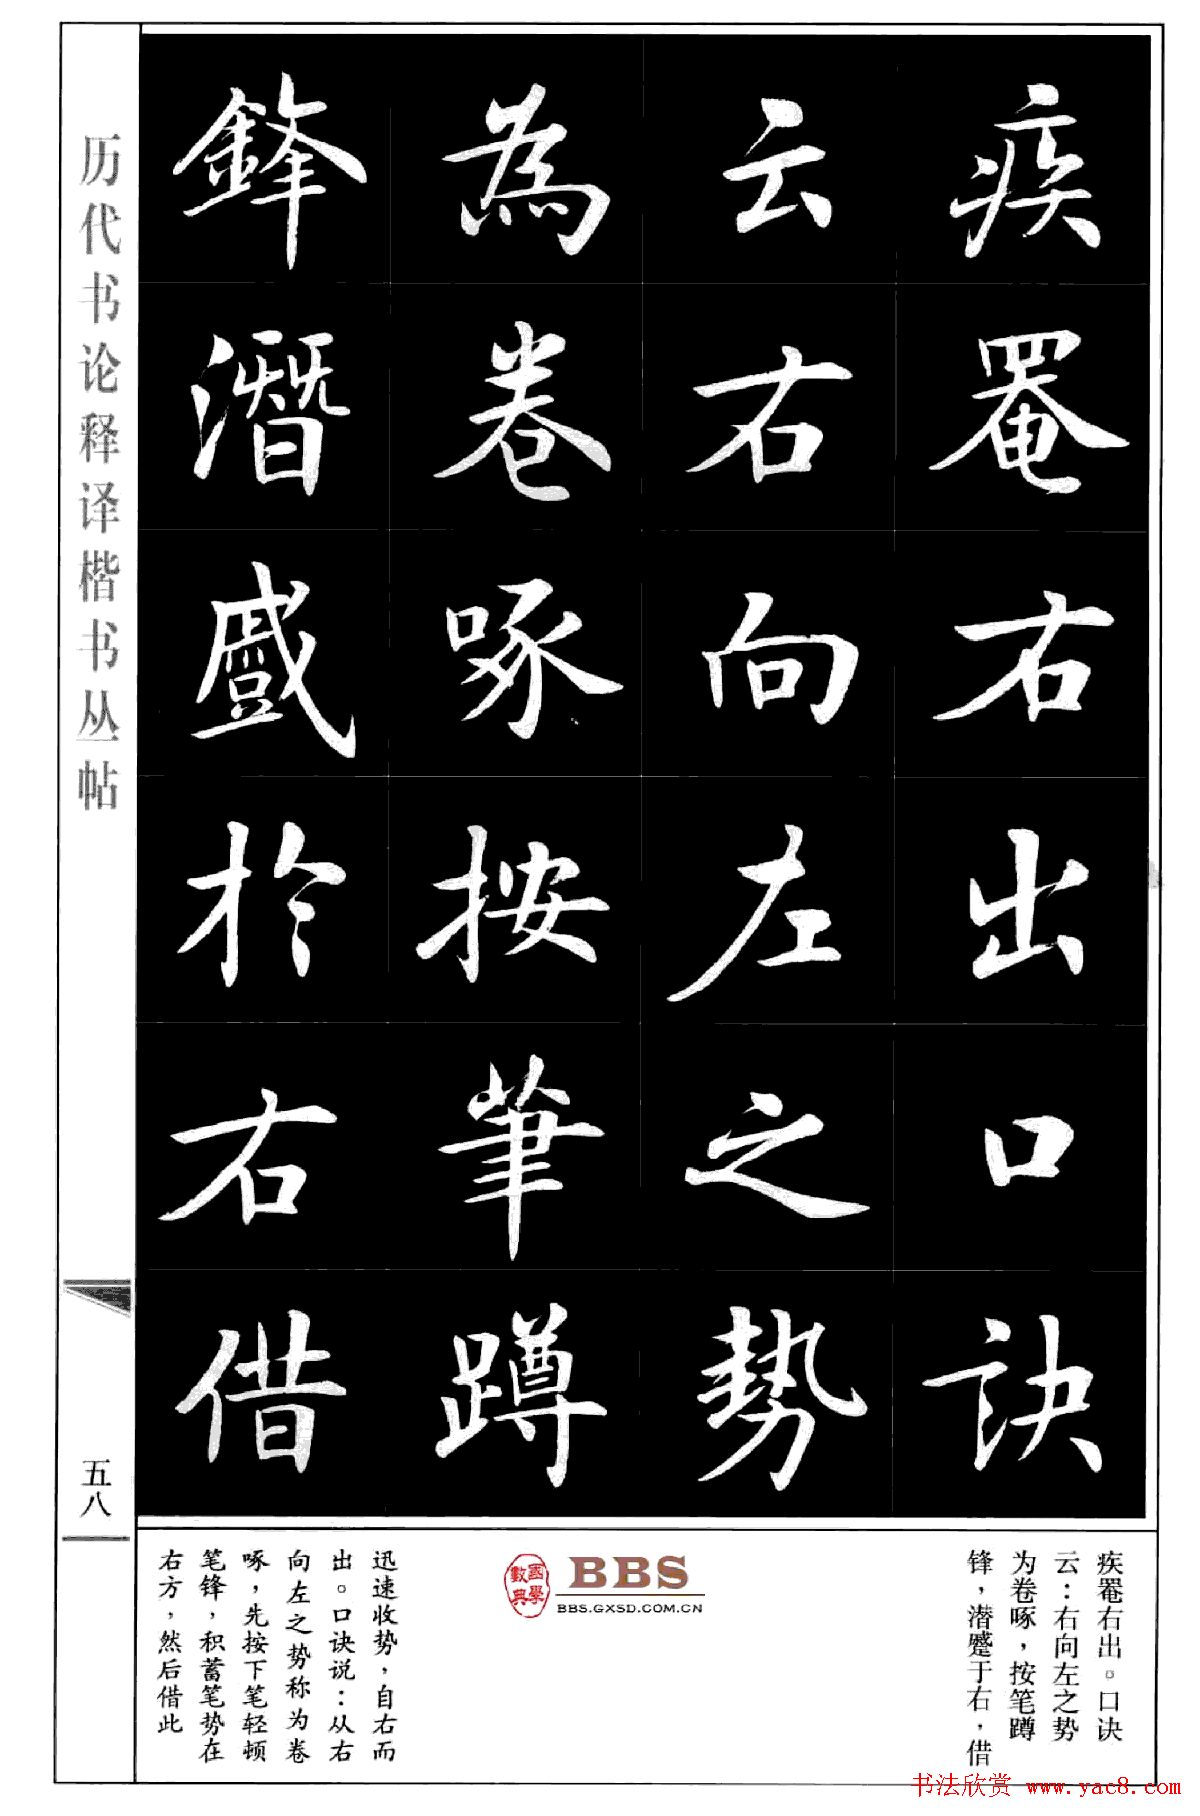 疾罨右出口訣
云右向左之勢
為卷啄按筆蹲
鋒潛蹙於右借
历代书论释译楷书丛帖
五八
疾罨右出。口诀
云：右向左之势
为卷啄，按笔蹲
锋，潜蹙于右，借
國學
數典
BBS
BBS.GXSD.COM.CN
迅速收势，自右而
出。口诀说：从右
向左之势称为卷
啄，先按下笔轻顿
笔锋，积蓄笔势在
右方，然后借此
书法欣赏 www.yac8.com